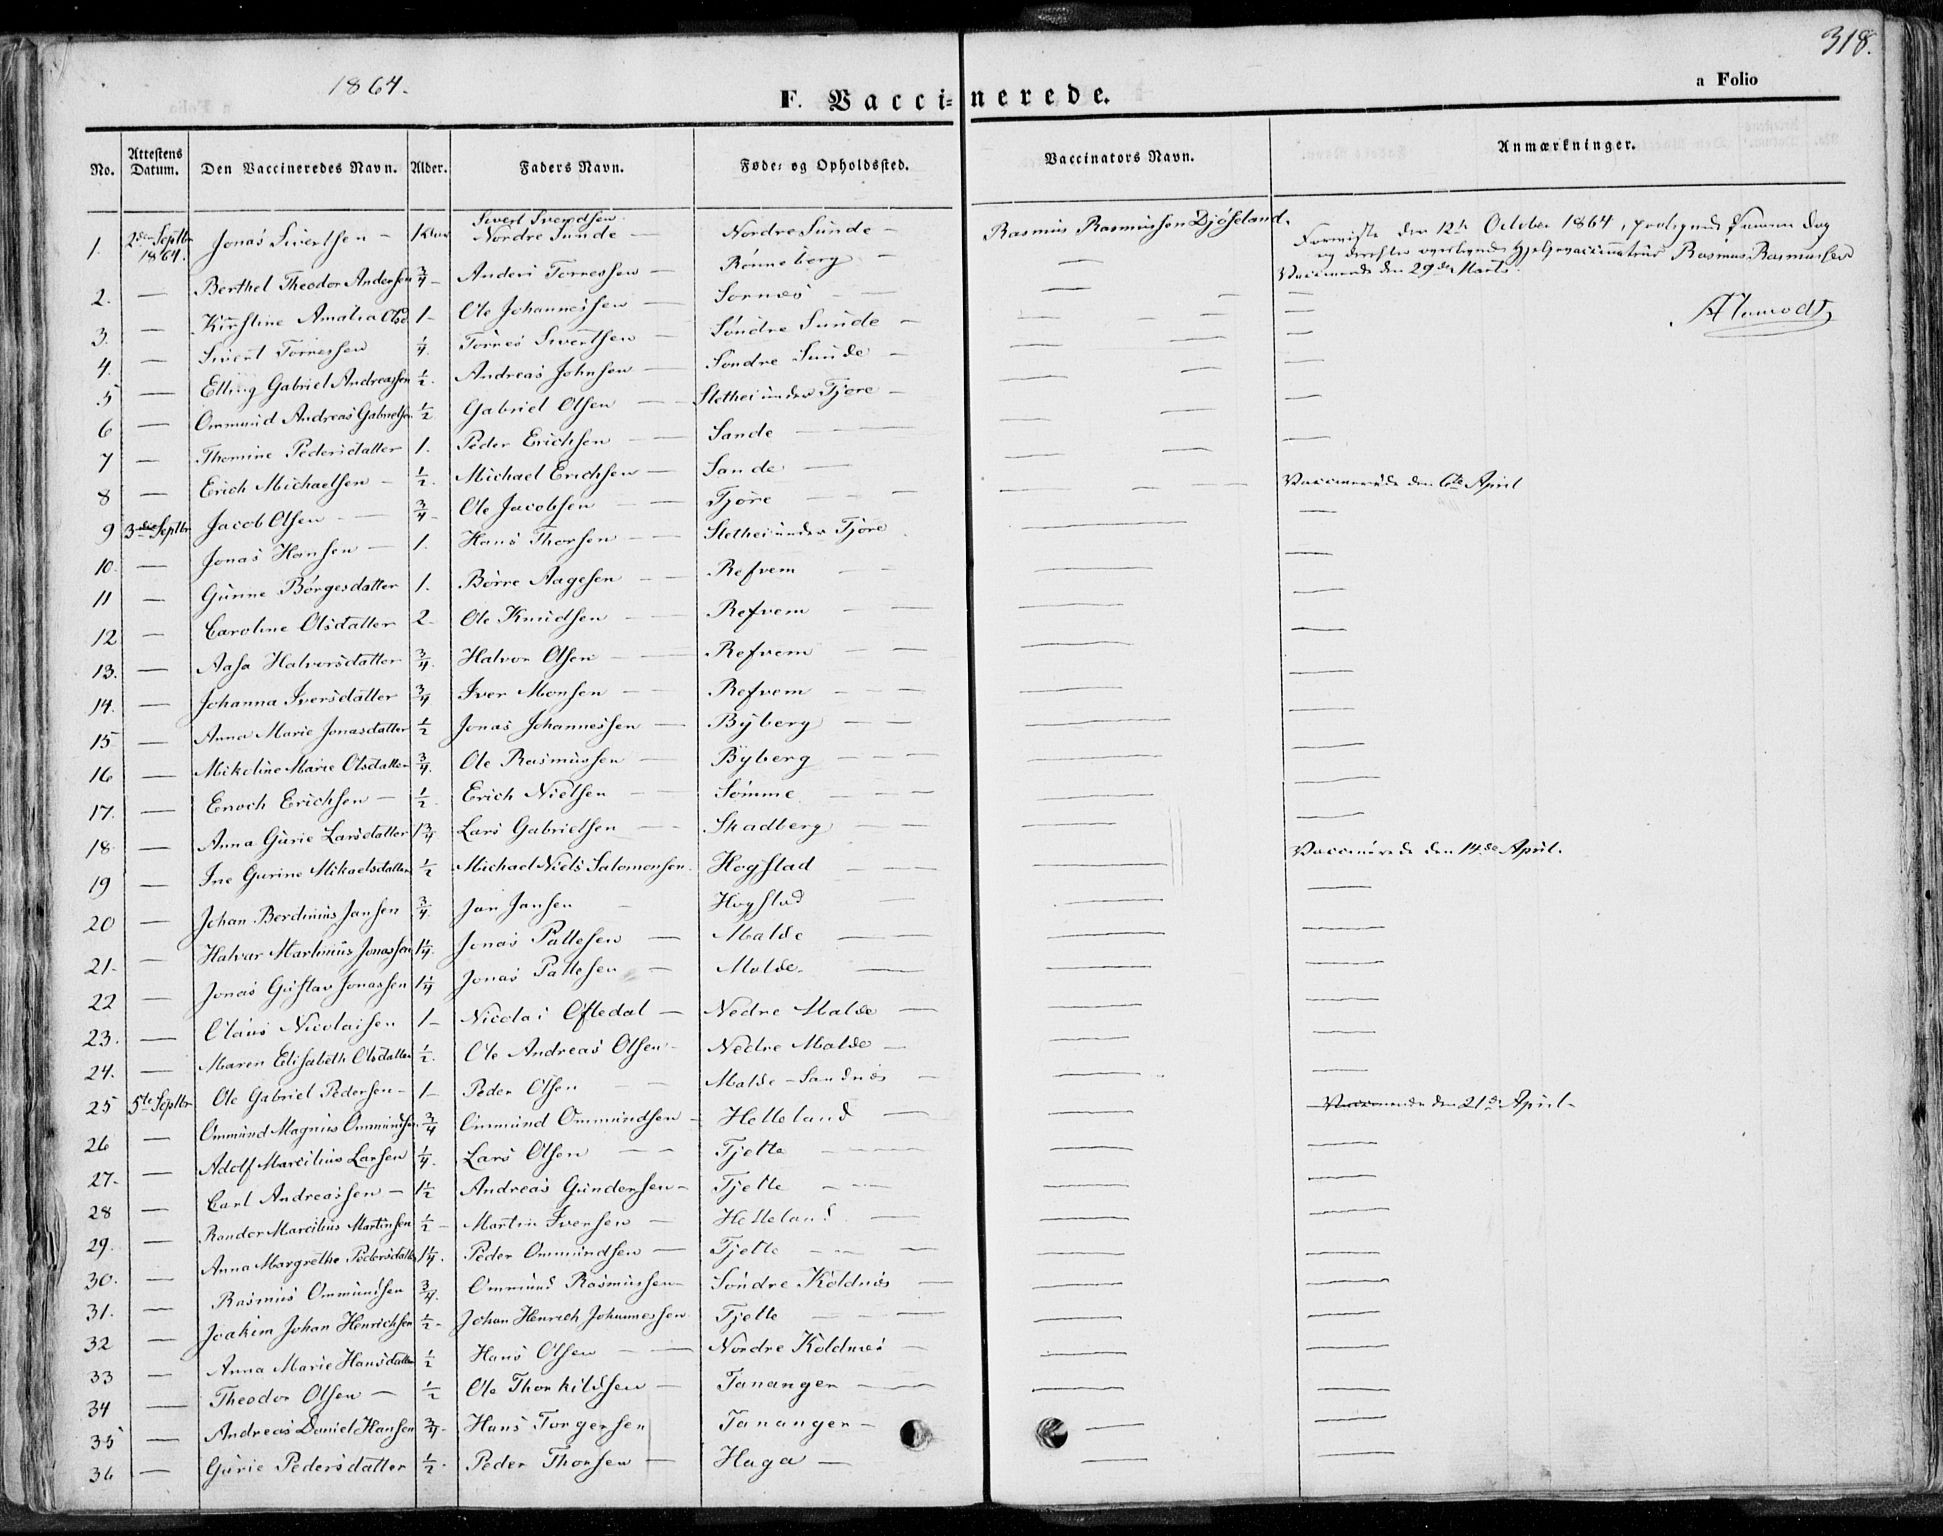 318.
1864.
a Folio
F. Vaccinerede.
No. Attestens Datum. Den Vaccineredes Navn. Alder. Faders Navn. Føde- og Opholdssted. Vaccinators Navn. Anmærkninger.
1. 2den Septbr 1864. Jonas Sivertsen — 1 Sivert Svendsen Nordre Sunde — Nordre Sunde — Rasmus Rasmussen Djöseland. Forevist den 12te October 1864,
Rasmus Rasmussen
2. — Berthel Theodor Andersen 3/4 — Anders Torressen — Rönneberg — — Vaccinerede den 29de Marts.
3. — Kirstine Amalia Olsd. 1 — Ole Johannessen — Sornes — —
4. — Sivert Torressen 1/4. Torres Sivertsen — Söndre Sunde —
5 — Elling Gabriel Andreassen 1/2. Andreas Johnsen — Söndre Sunde —
6 — Ommund Andreas Gabrielsen 1/2 Gabriel Olsen — Slethei under Tjore —
7 — Thomine Pedersdatter 1. Peder Erichsen — Sande —
8 — Erich Michaelsen — 1/2. Michael Erichsen — Sande —
9 3die Septbr Jacob Olsen — 3/4 — Ole Jacobsen — Tjore — Vaccinerede den 6te April
10. — Jonas Hansen — 1. Hans Thorsen — Slethei under Tjore
11 — Gunne Börgesdatter 1. Börre Aagesen — Refvem —
12 — Caroline Olsdatter 2 — Ole Knudsen — Refvem —
13. — Aasa Halvorsdatter 3/4. Halvor Olsen — Refvem —
14. — Johanna Iversdatter 3/4 Iver Monsen — Refvem —
15 — Anna Marie Jonasdatter 1/2 Jonas Johannessen — Byberg —
16 — Mikeline Marie Olsdatter 3/4. Ole Rasmussen — Byberg —
17. — Enoch Erichsen — 1/2. Erich Nielsen — Sömme —
18 — Anna Gurie Larsdatter 1 3/4 Lars Gabrielsen — Skadberg —
19 — Ine Gurine Mikaelsdatter 1/2 Michael Niels Salomonsen. Hogstad — Vaccinerede den 14de April.
20 — Johan Berdinius Jansen 3/4. Jan Jansen — Hogstad —
21. — Halvar Martinius Jonassen 1 1/4. Jonas Pallesen — Malde —
22 — Jonas Gustav Jonassen 1 1/4 Jonas Pallesen — Malde. —
23. — Olaus Nicolaisen 1 — Nicolai Oftedal — Nedre Malde —
24. — Maren Elisabeth Olsdatter 1/2. Ole Andreas Olsen — Nedre Malde —
25 5te Septbr Ole Gabriel Pedersen — 1 — Peder Olsen — Malde – Sandnes —
26 — Ommund Magnus Ommundsen 3/4 Ommund Ommundsen — Helleland — Vaccinerede den 21de April —
27. — Adolf Marcilius Larsen 1/4. Lars Olsen — Tjelte —
28 — Carl Andreassen — 1 1/2 Andreas Gundersen — Tjelte —
29. — Randor Marcilius Martinsen 1/2 — Martin Iversen — Helleland. —
30. — Anna Margrethe Pedersdatter 1 1/4. Peder Ommundsen — Tjelte —
31. — Rasmus Ommundsen 3/4. Ommund Rasmussen — Söndre Koldnes —
32 — Joakim Johan Henrichsen 1/2 — Johan Henrich Johannessen Tjelte —
33 — Anna Marie Hansdatter 1/2 Hans Olsen — Nordre Koldnes —
34 — Theodor Olsen — 1/2 Ole Thorkildsen — Tananger —
35 — Andreas Daniel Hansen 3/4 — Hans Torgersen Tananger —
36 — Gurie Pedersdatter 1/2. Peder Thorsen — Haga —